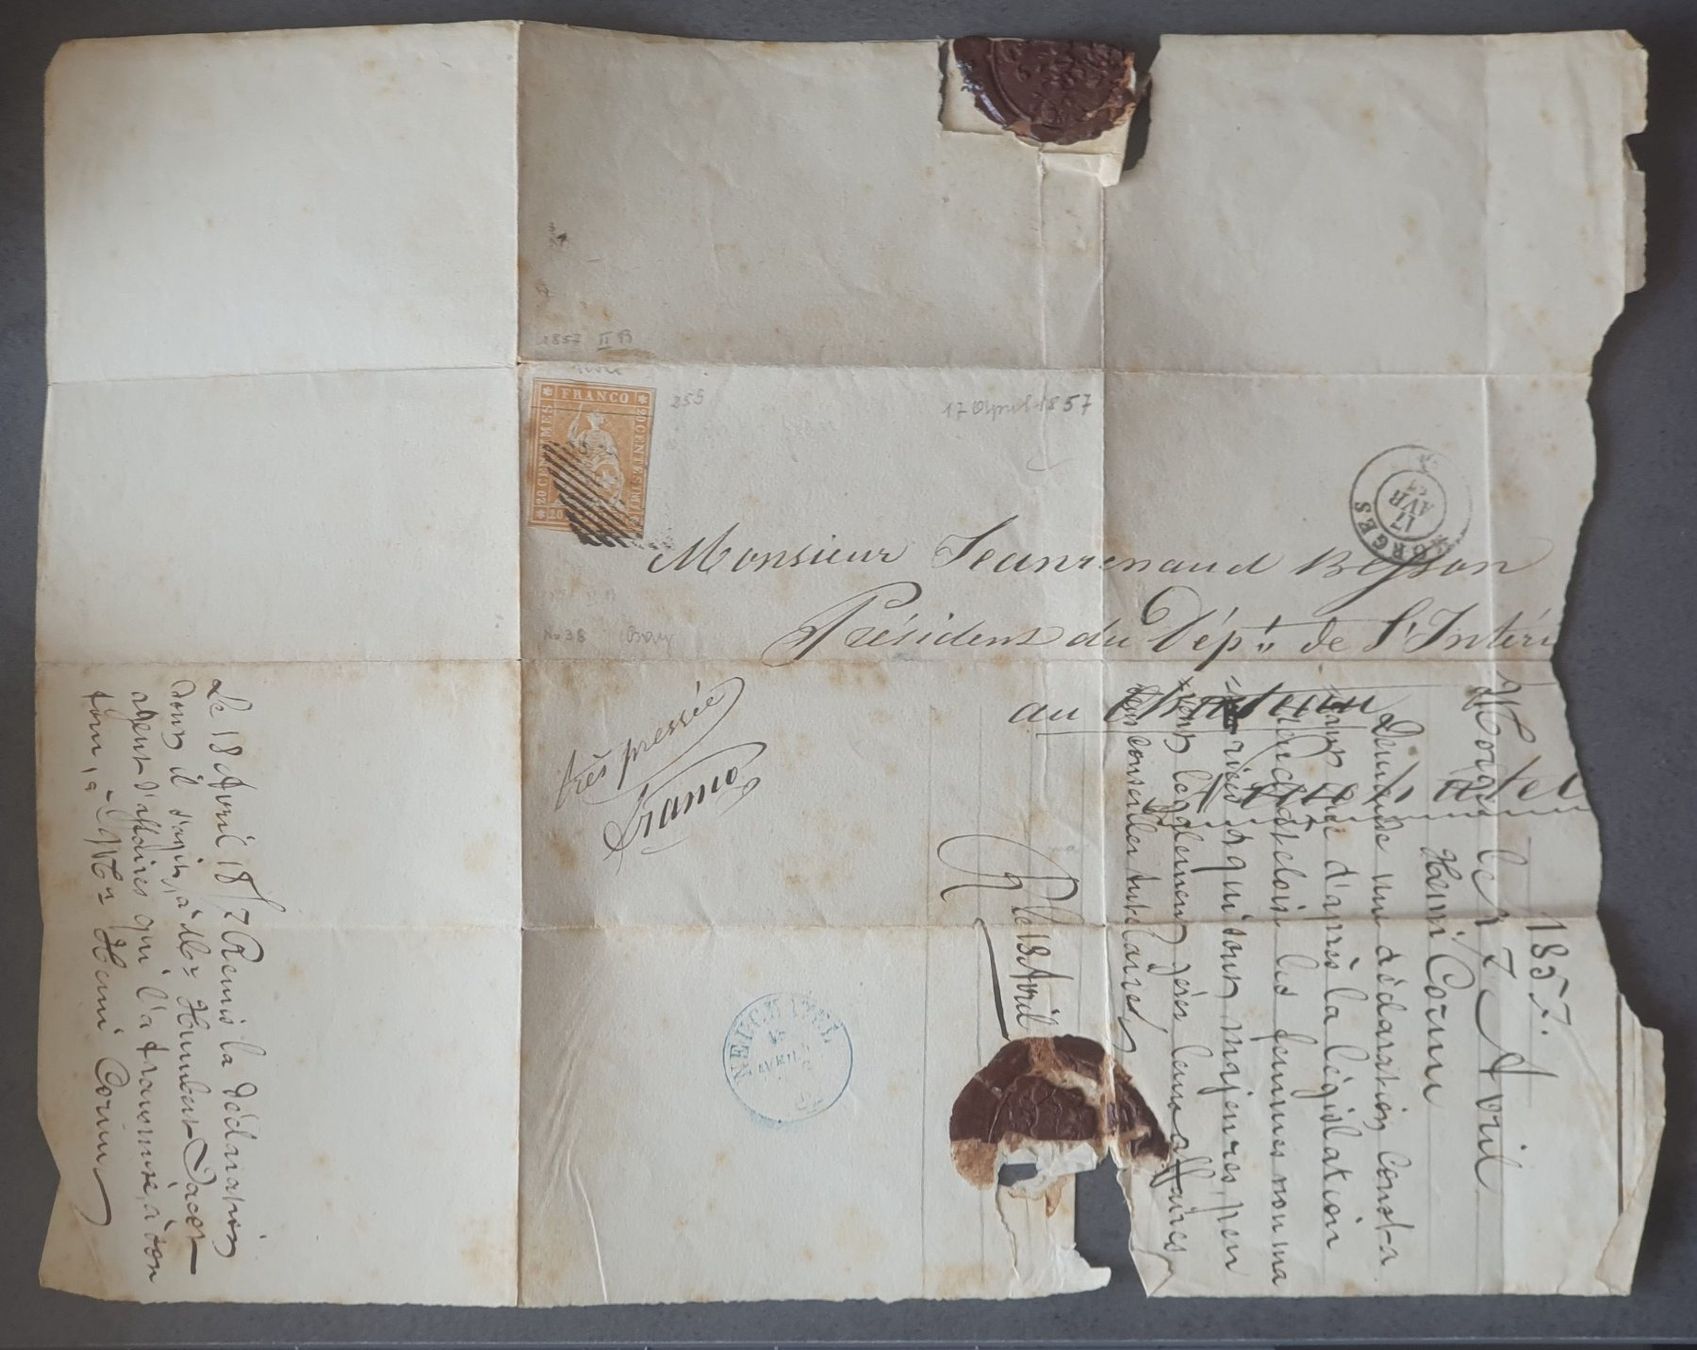 1857 II B
FRANCO
20 CENTESIMI
20 CENTIMES
20
255
17 April 1857
MORGES
17
AVR
57
Monsieur Jeanrenaud Besson
Président du Dépt. de l'Intéri
au Château
Neuchatel
très pressée
Franco
No 38
NEUCHATEL
AVRIL
Morges le 17 Avril
1857.
Henri Cornu
Demande une déclaration consta
tant que d'après la législation
neuchâteloise les femmes non ma
riées & qui sont majeures, peu
vent légalement gérer leurs affaires,
sans conseiller tutélaires
R le 18 Avril
Le 18 Avril 1857 Remis la déclaration
dont il s'agit, à Mr Humbert-Jacot
agent d'affaires qui l'a transmise à son
tour, à Mr Henri Cornu